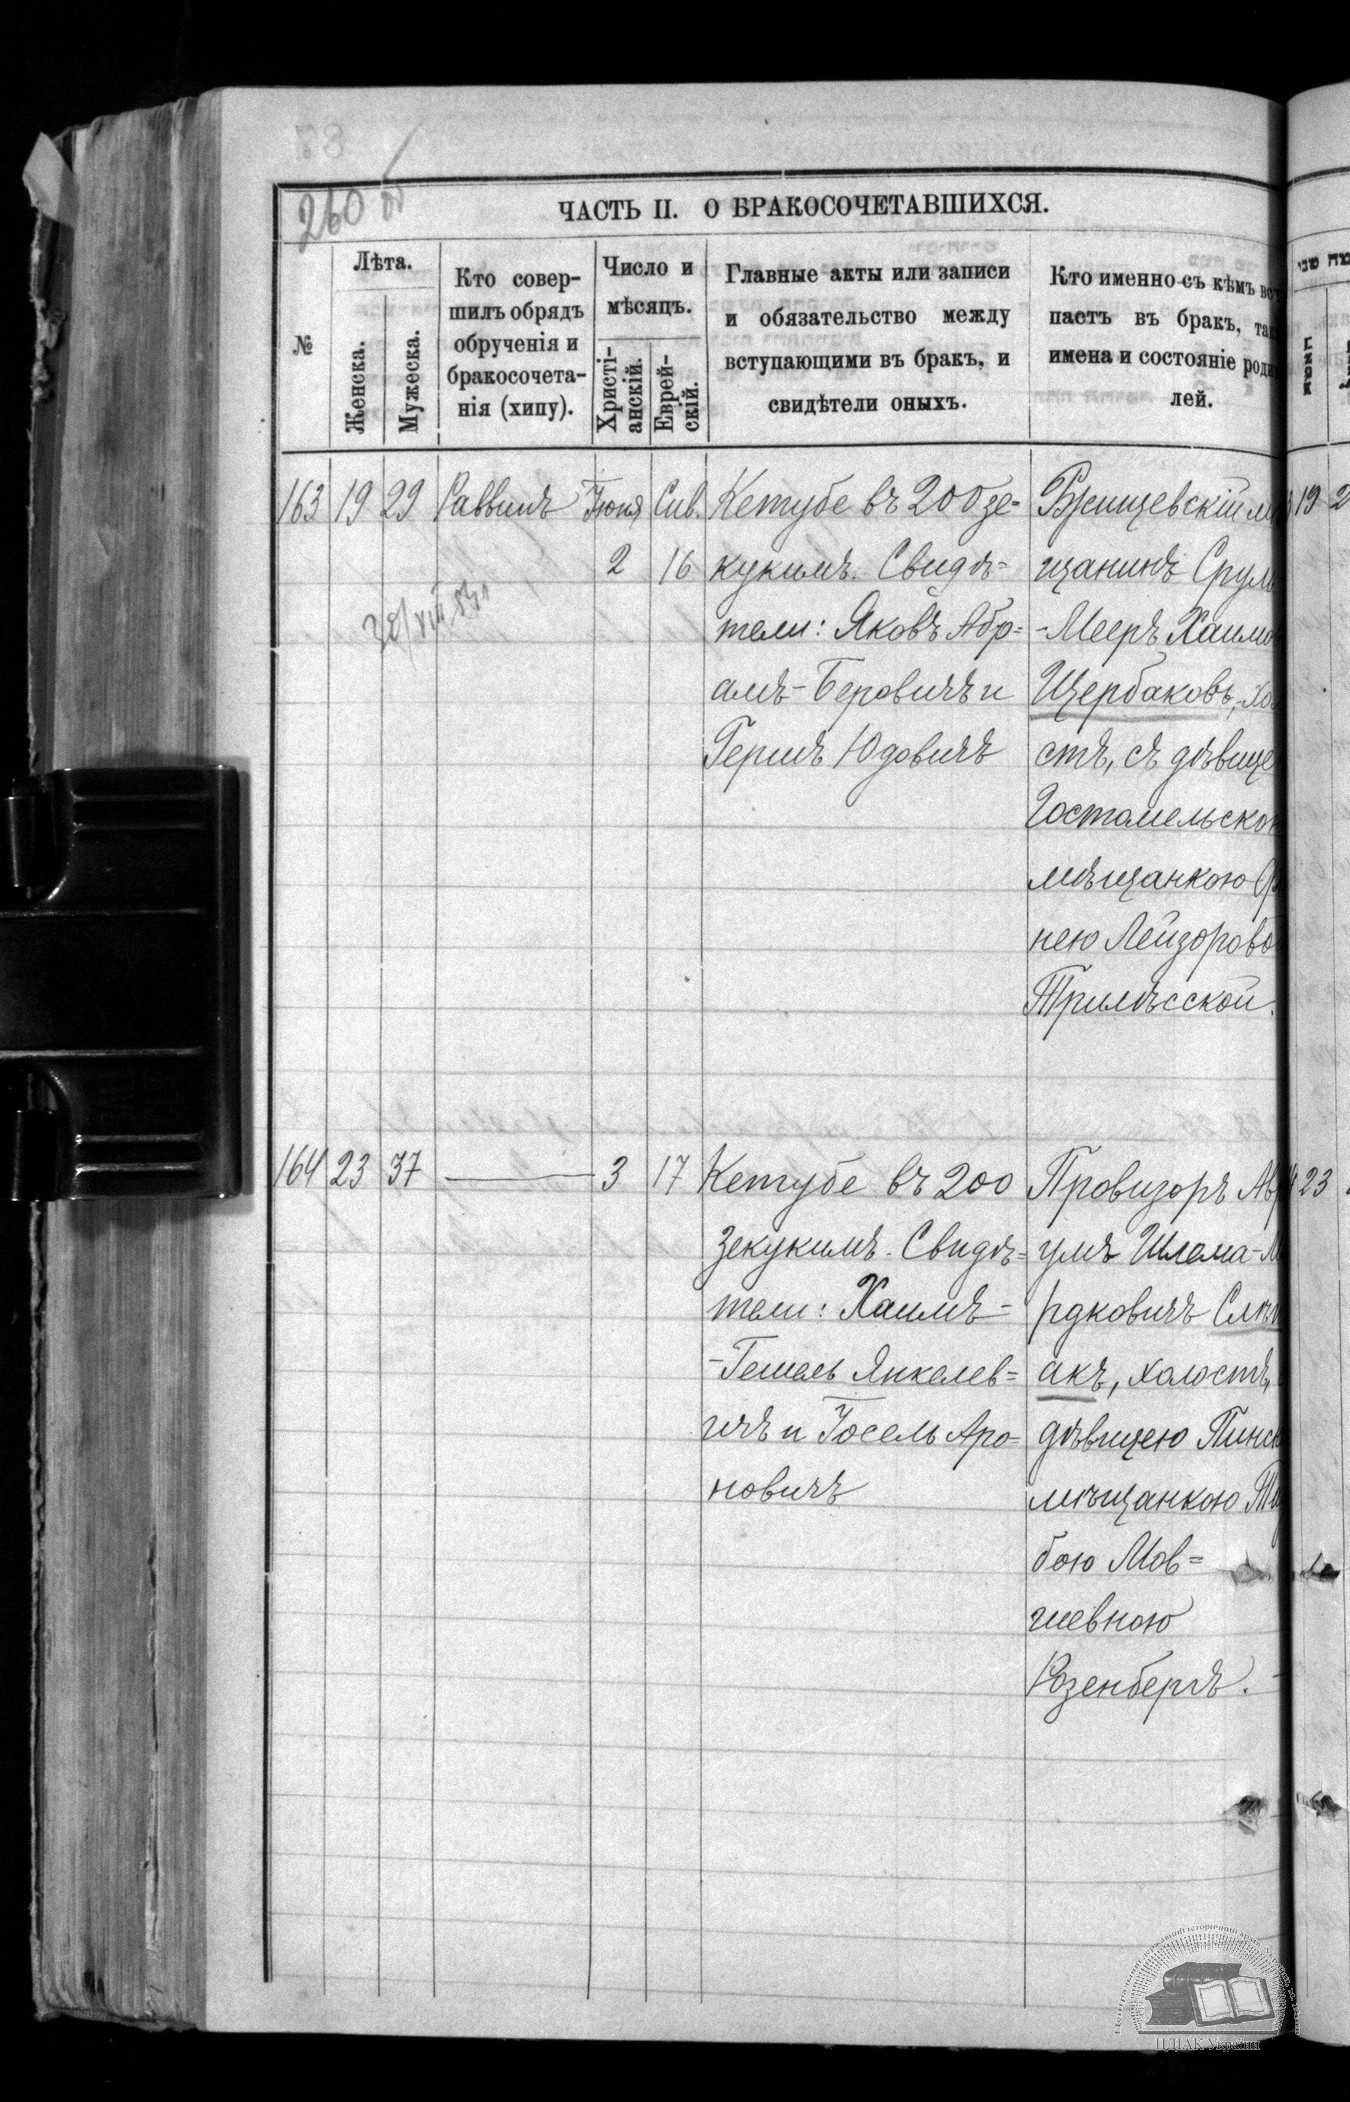 260 об
ЧАСТЬ II. О БРАКОСОЧЕТАВШИХСЯ.
№
Лѣта.
Женска.
Мужеска.
Кто совер-
шилъ обрядъ
обрученія и
бракосочета-
нія (хипу).
Число и
мѣсяцъ.
Христі-
анскій.
Еврей-
скій.
Главные акты или записи
и обязательство между
вступающими въ бракъ, и
свидѣтели оныхъ.
Кто именно съ кѣмъ всту
паетъ въ бракъ, так
имена и состояніе роди
лей.
163 19 29 Раввинъ Іюня 2 Сив. 16
Кетубе въ 200 зе=
кукимъ. Свидѣ=
тели: Яковъ Абр=
амъ-Беровичъ и
Гершъ Юдовичъ
Ржищевскій мѣ
щанинъ Сруль
-Мееръ Хаимо
Щербаковъ, хо
стъ, съ дѣвице
Гостомельско
мѣщанкою
нею Лейзорово
Трилѣсской.
164 23 37 — 3 17
Кетубе въ 200
зекукимъ. Свидѣ=
тели: Хаимъ-
-Гешель Янкелев=
ичъ и Іосель Аро=
новичъ
Провизоръ Ав
умъ Шлема-М
рдковичъ Слѣп
акъ, холостъ,
дѣвицею Пинск
мѣщанкою
бою Мов=
шевною
Розенбергъ.
19 2
23
ЦДІАК України